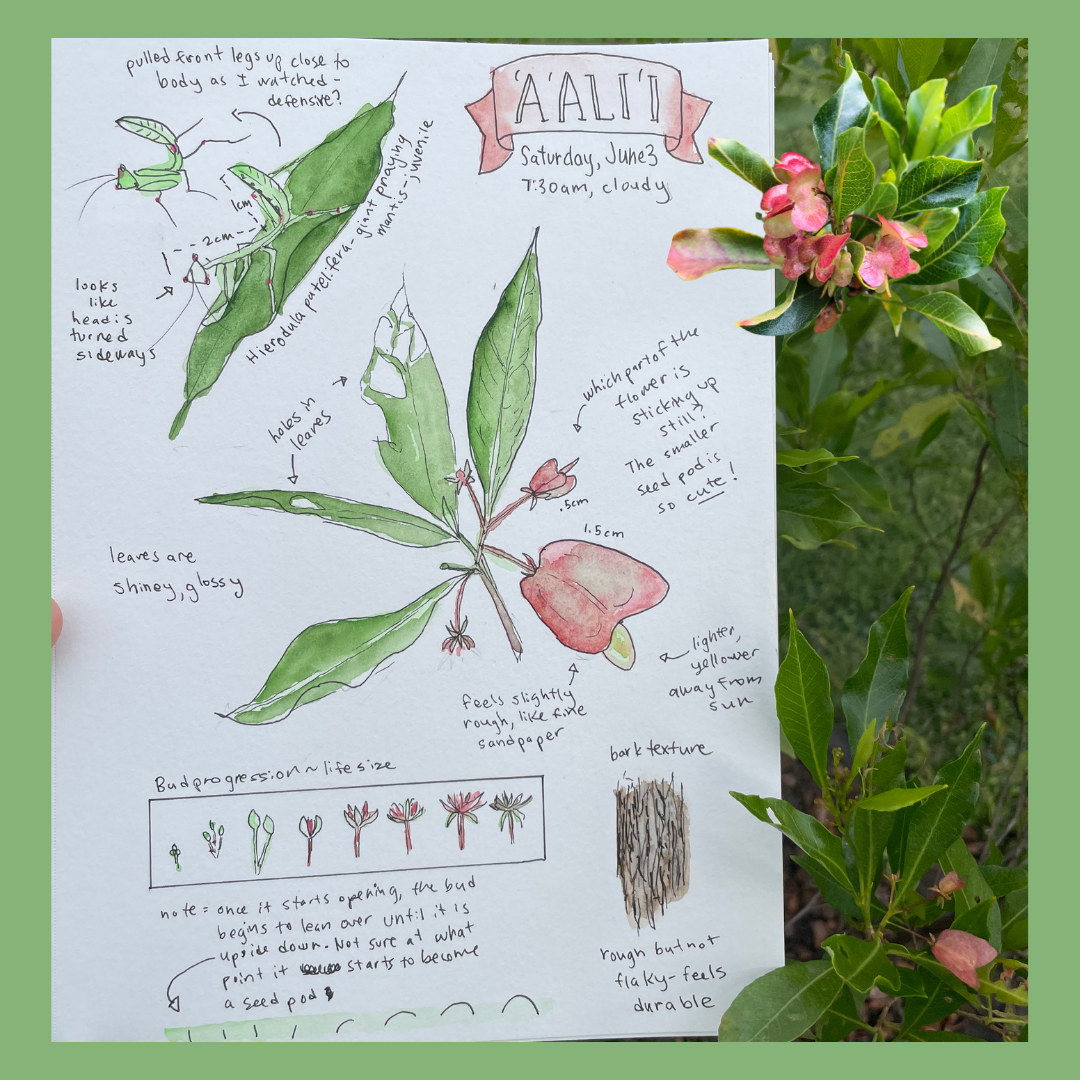 pulled front legs up close to
body as I watched -
defensive?
'A'ALI'I
Saturday, June 3
7:30am, cloudy
1cm
2cm
Hierodula patelifera - giant praying
mantis - juvenile
looks
like
head is
turned
sideways
holes in
leaves
which part of the
flower is
sticking up
still?
The smaller
seed pod is
so cute!
.5cm
1.5cm
leaves are
shiney, glossy
lighter,
yellower
away from
sun
feels slightly
rough, like fine
sandpaper
Bud progression ~ life size
bark texture
note = once it starts opening, the bud
begins to lean over until it is
upside down. Not sure at what
point it starts to become
a seed pod
rough but not
flaky - feels
durable